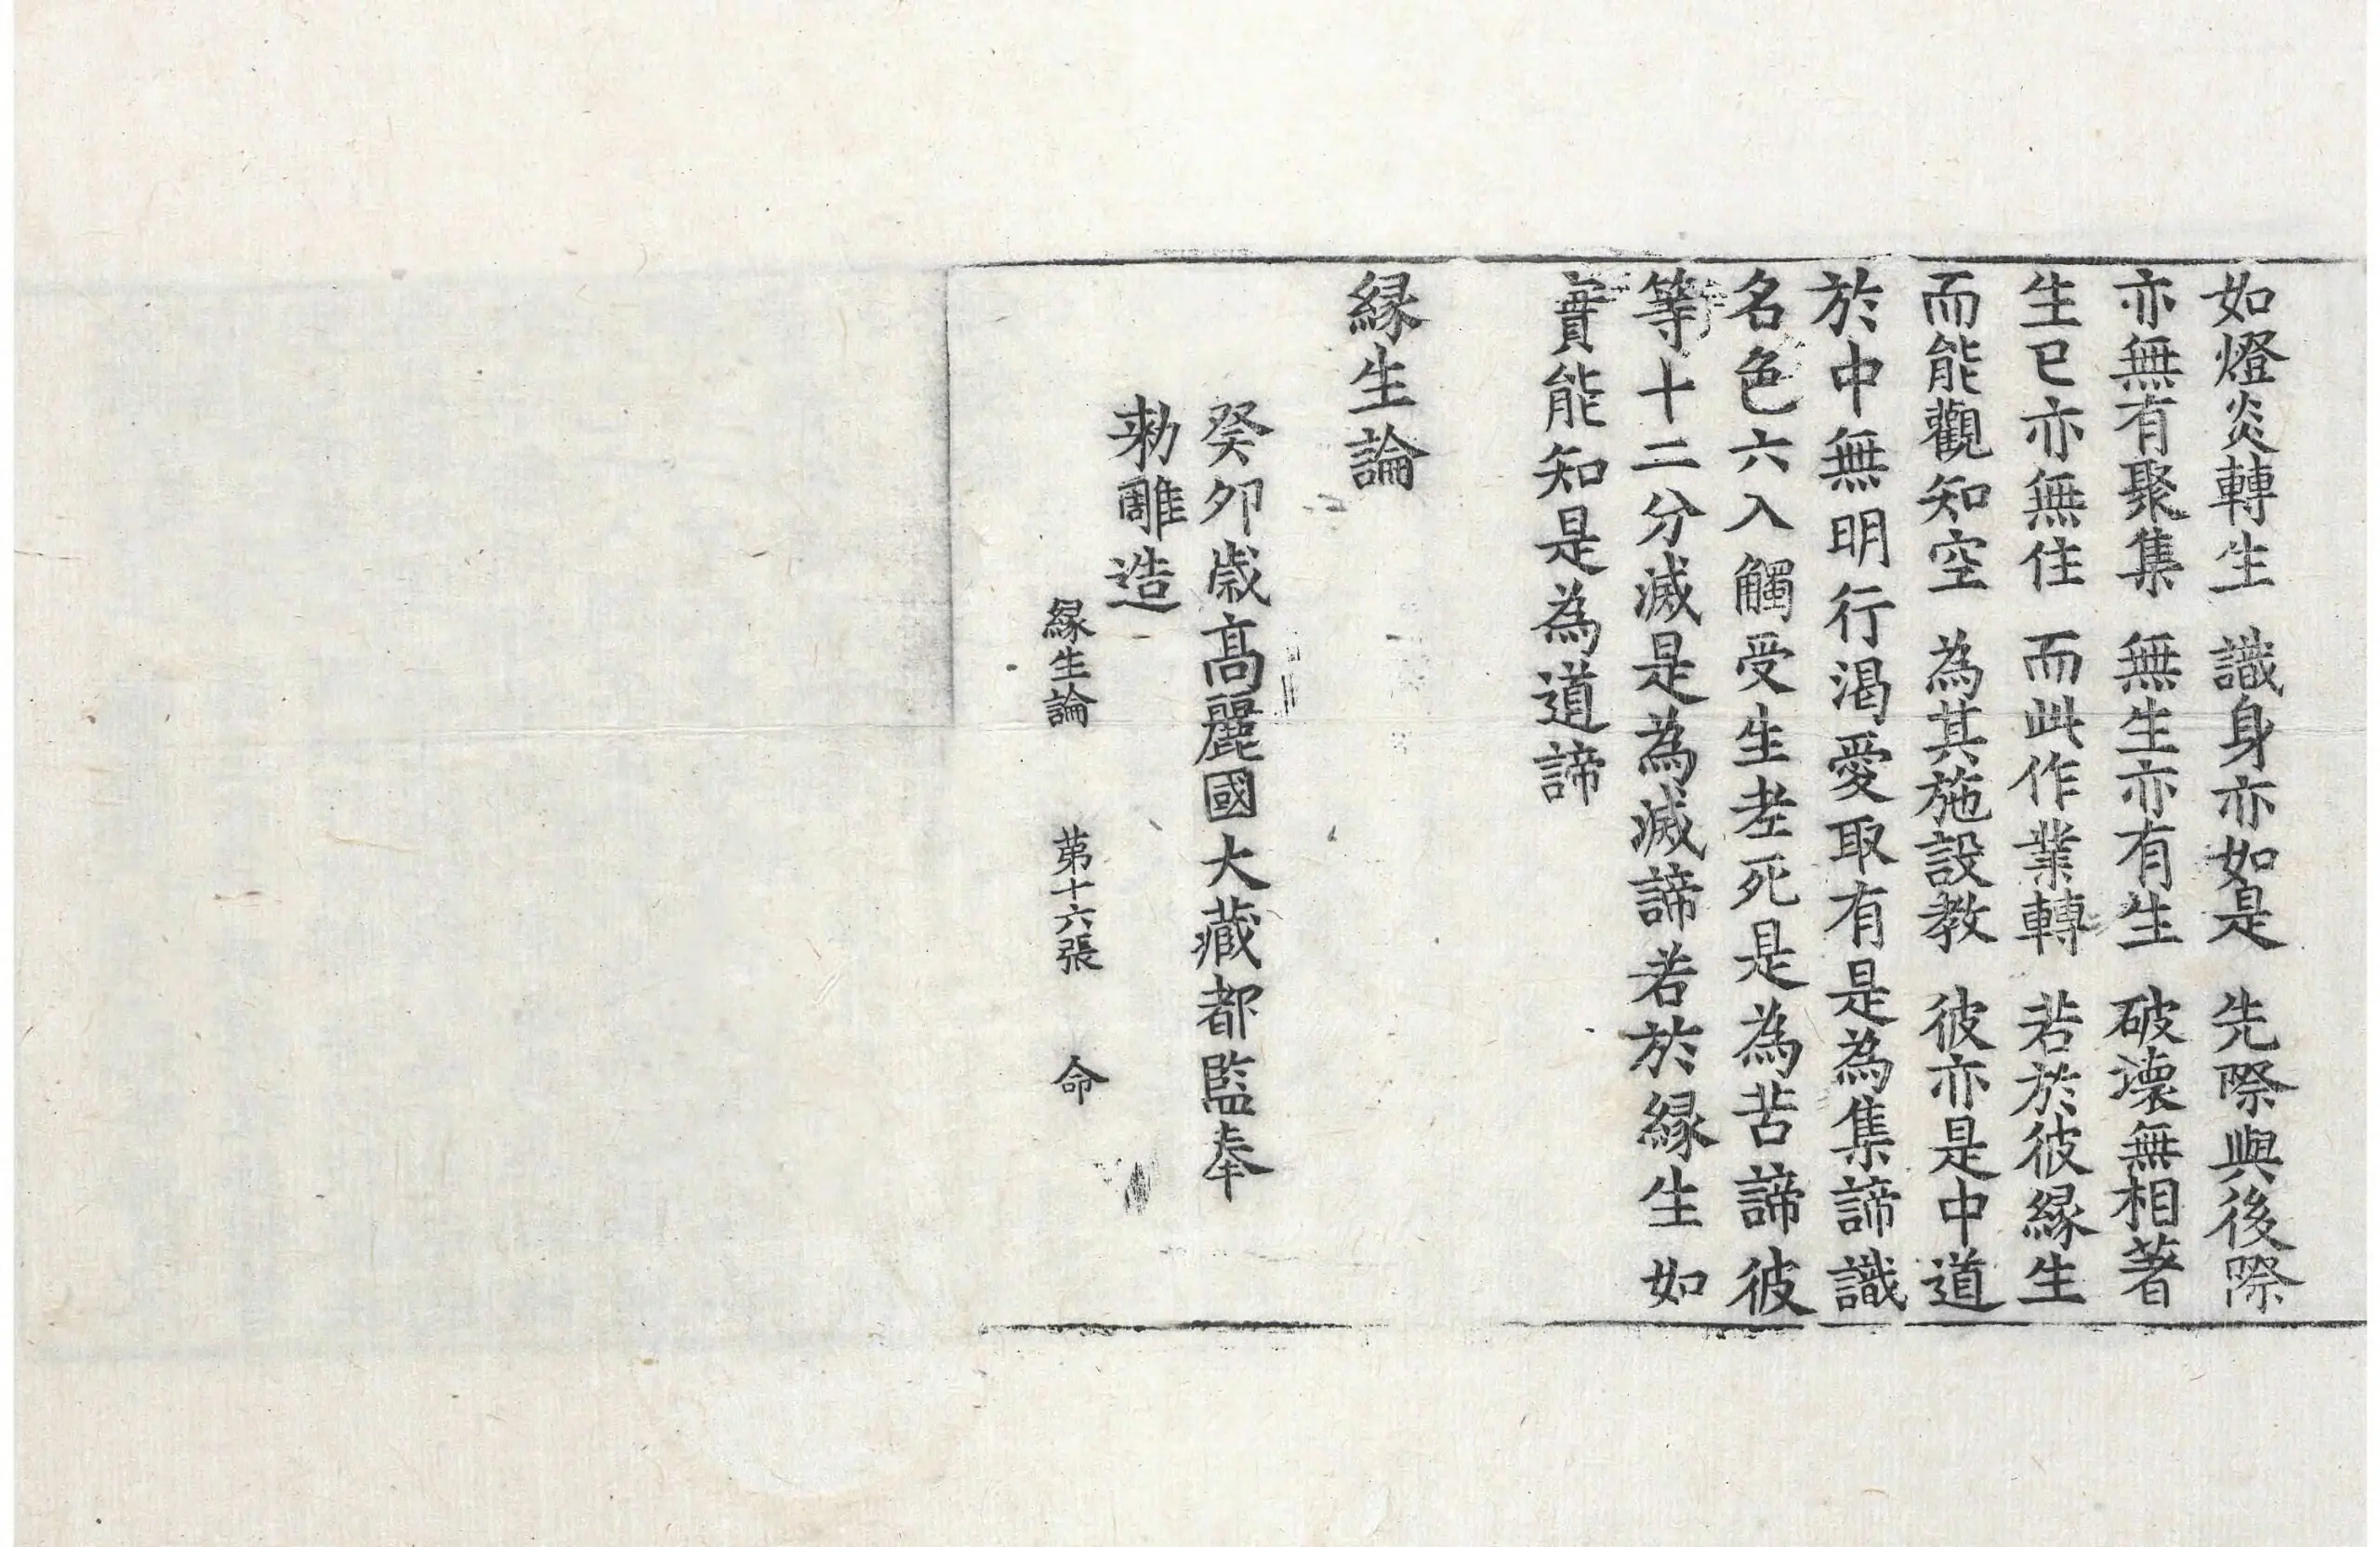 如燈炎轉生 識身亦如是 先際與後際
亦無有聚集 無生亦有生 破壞無相著
生已亦無住 而此作業轉 若於彼縁生
而能觀知空 為其施設教 彼亦是中道
於中無明行渴愛取有是為集諦識
名色六入觸受生老死是為苦諦彼
等十二分滅是為滅諦若於縁生如
實能知是為道諦
縁生論
癸卯歲高麗國大藏都監奉
勑雕造
縁生論 苐十六張 命